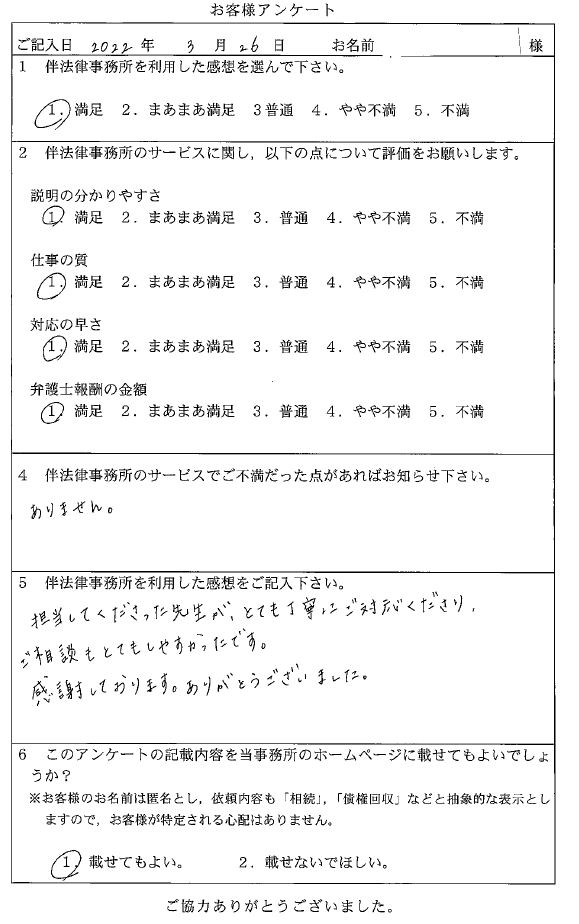 お客様アンケート
ご記入日 2022 年 3 月 26 日 お名前 様
1 伴法律事務所を利用した感想を選んで下さい。
1. 満足 2. まあまあ満足 3 普通 4. やや不満 5. 不満
2 伴法律事務所のサービスに関し,以下の点について評価をお願いします。
説明の分かりやすさ
1. 満足 2. まあまあ満足 3. 普通 4. やや不満 5. 不満
仕事の質
1. 満足 2. まあまあ満足 3. 普通 4. やや不満 5. 不満
対応の早さ
1. 満足 2. まあまあ満足 3. 普通 4. やや不満 5. 不満
弁護士報酬の金額
1. 満足 2. まあまあ満足 3. 普通 4. やや不満 5. 不満
4 伴法律事務所のサービスでご不満だった点があればお知らせ下さい。
ありません。
5 伴法律事務所を利用した感想をご記入下さい。
担当してくださった先生が、とても丁寧にご対応くださり、
ご相談もとてもしやすかったです。
感謝しております。ありがとうございました。
6 このアンケートの記載内容を当事務所のホームページに載せてもよいでしょ
うか?
※お客様のお名前は匿名とし,依頼内容も「相続」,「債権回収」などと抽象的な表示とし
ますので,お客様が特定される心配はありません。
1. 載せてもよい。 2. 載せないでほしい。
ご協力ありがとうございました。